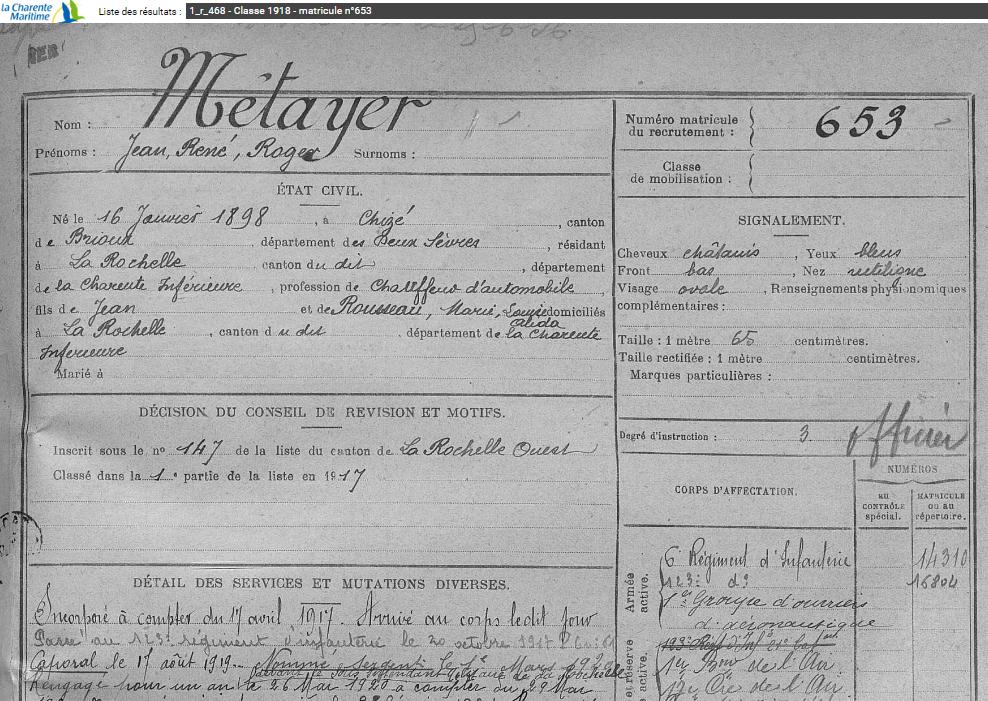 la Charente
Maritime
Liste des résultats :
1_r_468 - Classe 1918 - matricule n°653
Métayer
Nom :
Prénoms : Jean, René, Roger Surnoms :
Numéro matricule
du recrutement :
653
Classe
de mobilisation :
ÉTAT CIVIL.
Né le 16 Janvier 1898, à Chizé, canton
de Brioux, département des Deux Sèvres, résidant
à La Rochelle canton du dit, département
de la Charente Inférieure, profession de Chauffeur d'automobile
fils de Jean et de Rousseau, Marie, Louise domiciliés
à La Rochelle, canton du dit, département de la Charente
Inférieure
Marié à
SIGNALEMENT.
Cheveux châtains, Yeux bleus
Front bas, Nez rectiligne
Visage ovale, Renseignements physionomiques
complémentaires :
Taille : 1 mètre 65 centimètres.
Taille rectifiée : 1 mètre centimètres.
Marques particulières :
DÉCISION DU CONSEIL DE REVISION ET MOTIFS.
Inscrit sous le no 147 de la liste du canton de La Rochelle Ouest
Classé dans la 1e partie de la liste en 1917
Degré d'instruction : 3.
officier
NUMÉROS
CORPS D'AFFECTATION.
AU
CONTRÔLE
spécial.
MATRICULE
ou au
répertoire.
DÉTAIL DES SERVICES ET MUTATIONS DIVERSES.
Incorporé à compter du 17 avril 1917. Arrivé au corps ledit jour
Passé au 123e régiment d'infanterie le 20 octobre 1917
Caporal le 17 août 1919. Nommé Sergent le 1er Mars 1920
Rengagé pour un an le 26 Mai 1920 à compter du 29 Mai
Armée
active.
6e Régiment d'Infanterie 14310
123e do 16804
1er Groupe d'ouvriers
d'aéronautique
et réserve
active.
1er Bon de l'Air
12e Cie de l'Air